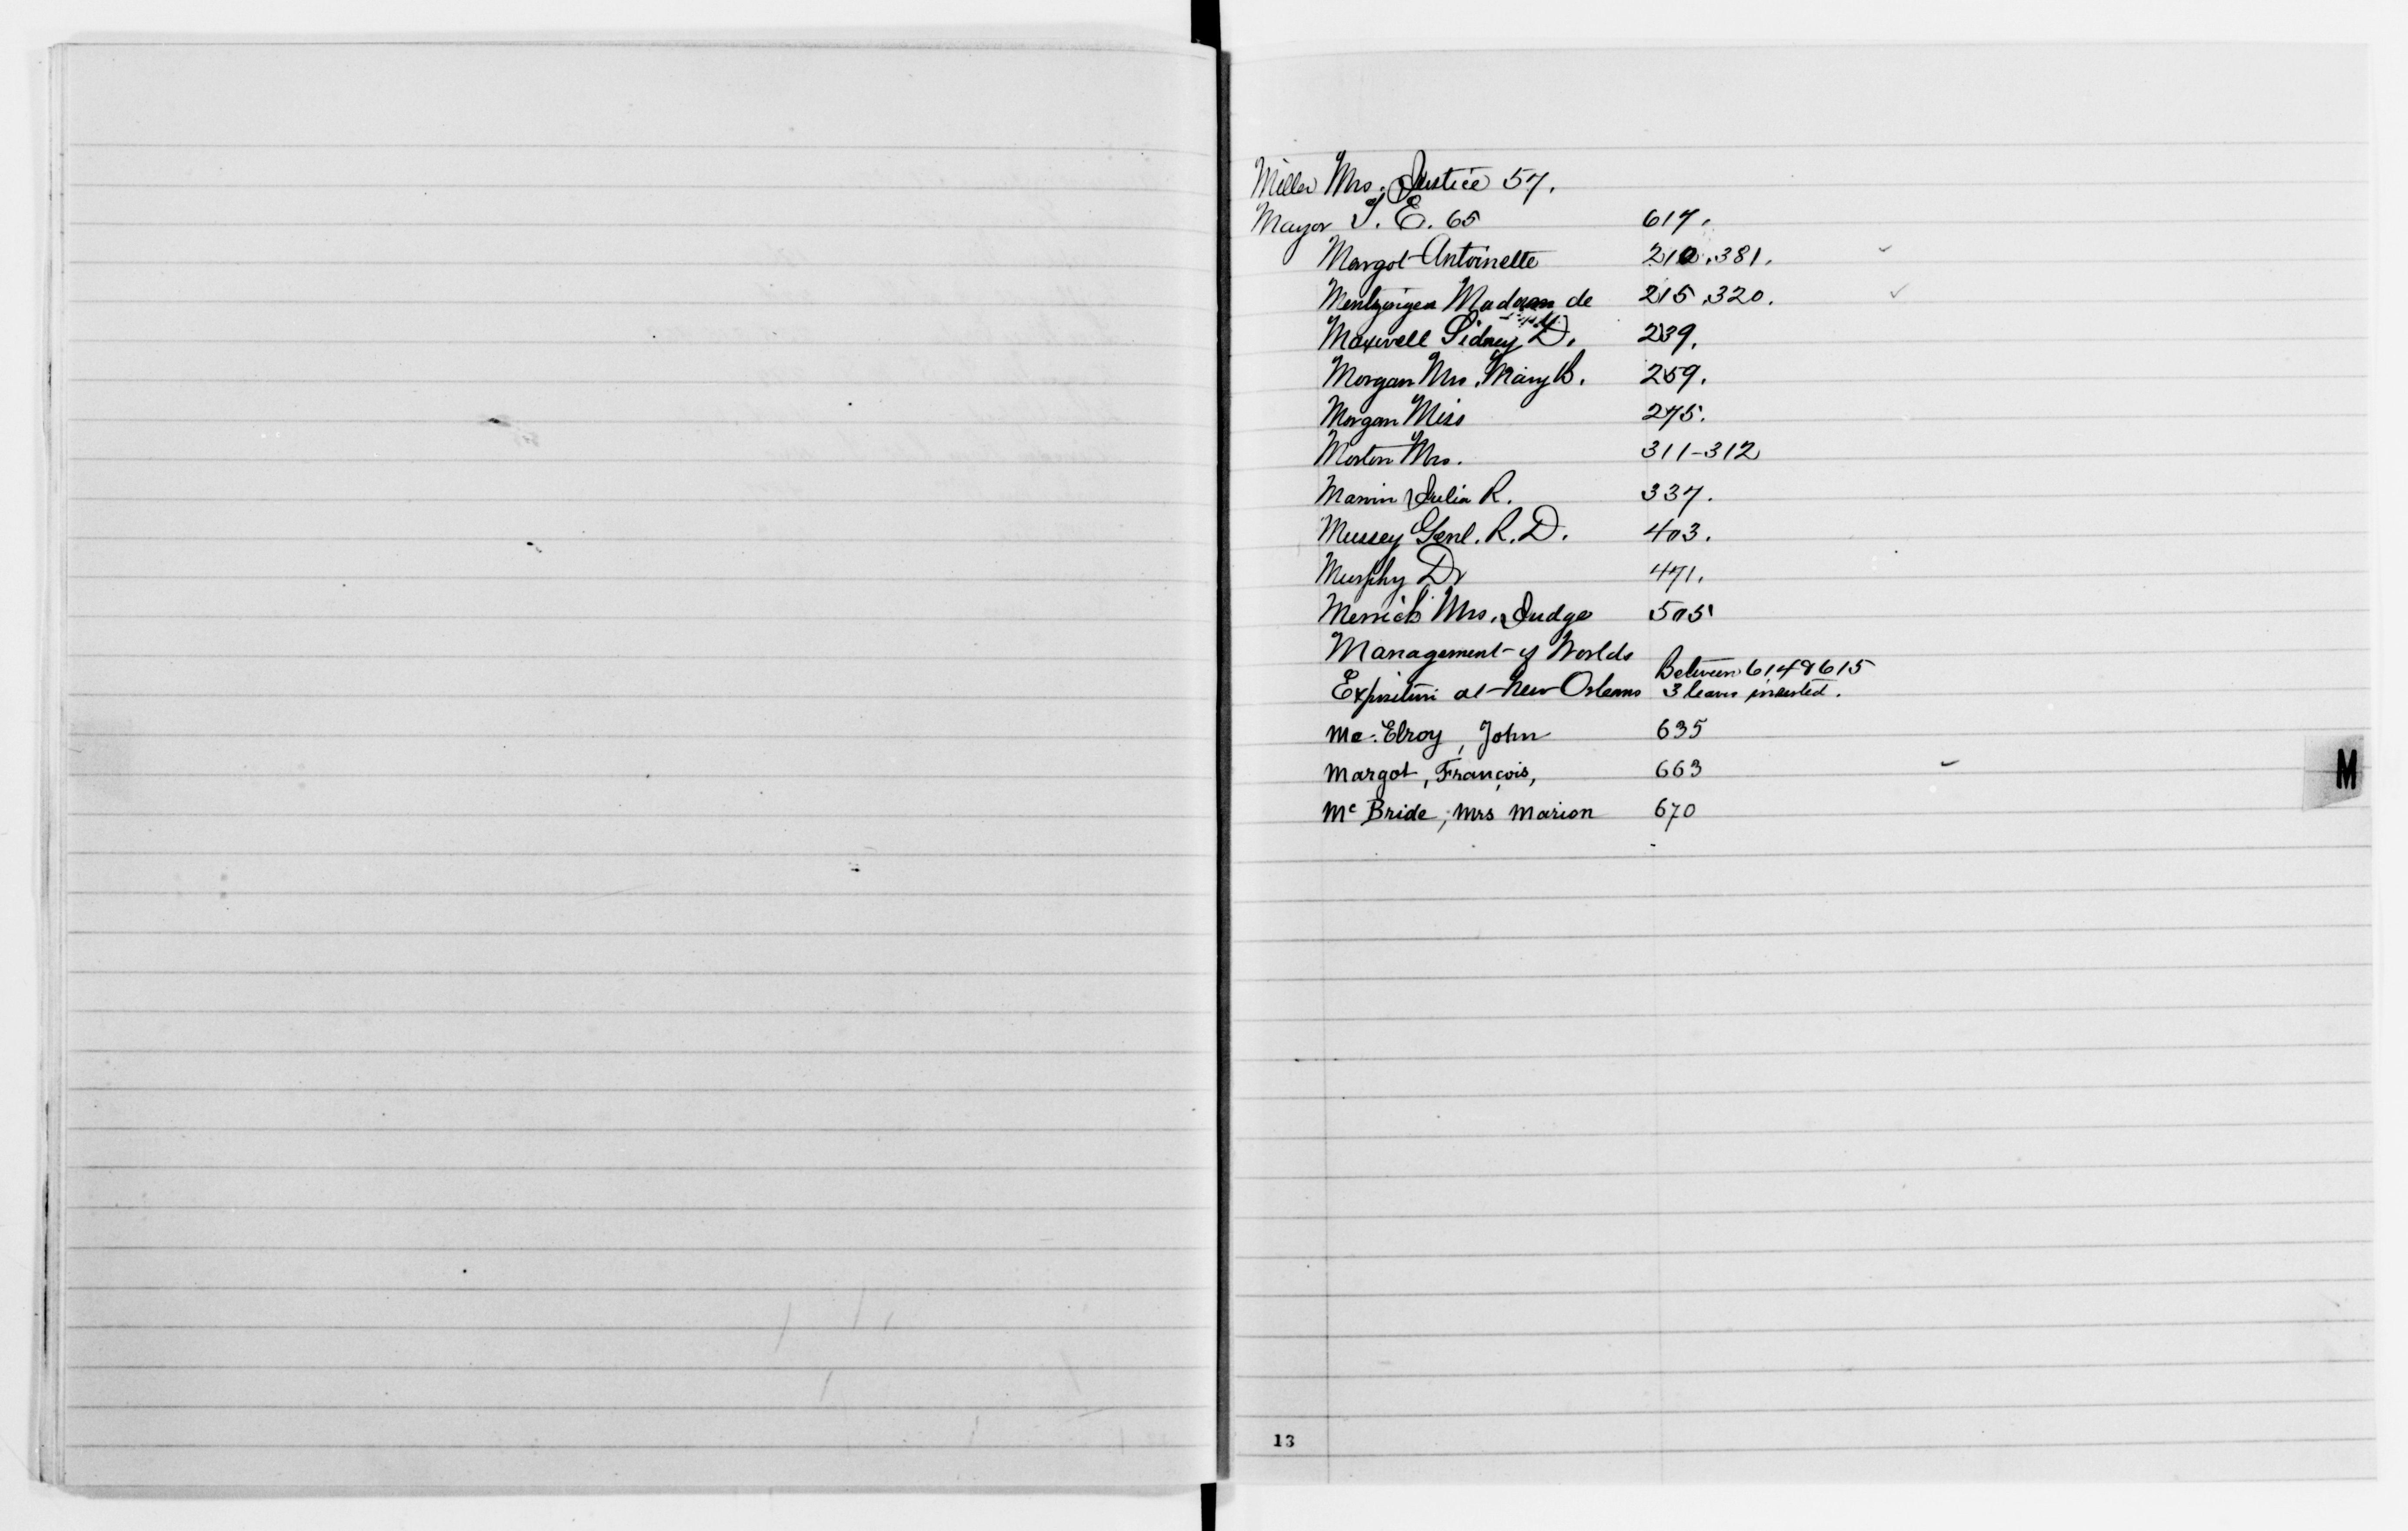 Miller Mrs. Justice 57.
Mayor T. E. 65 617.
Margot Antoinette 210.381.
Mentzingen Madam de 215.320.
Maxwell Sidney D. 239.
Morgan Mrs. Mary B. 259.
Morgan Miss 275.
Morton Mrs. 311-312
Marvin Julia R. 337.
Mussey Genl. R. D. 403.
Murphy Dr 471.
Merrick Mrs. Judge 505
Management of Worlds
Between 614 & 615
Exposition at New Orleans 3 leaves inserted.
Mc. Elroy, John 635
Margot, François, 663
Mc Bride, Mrs Marion 670
M
13